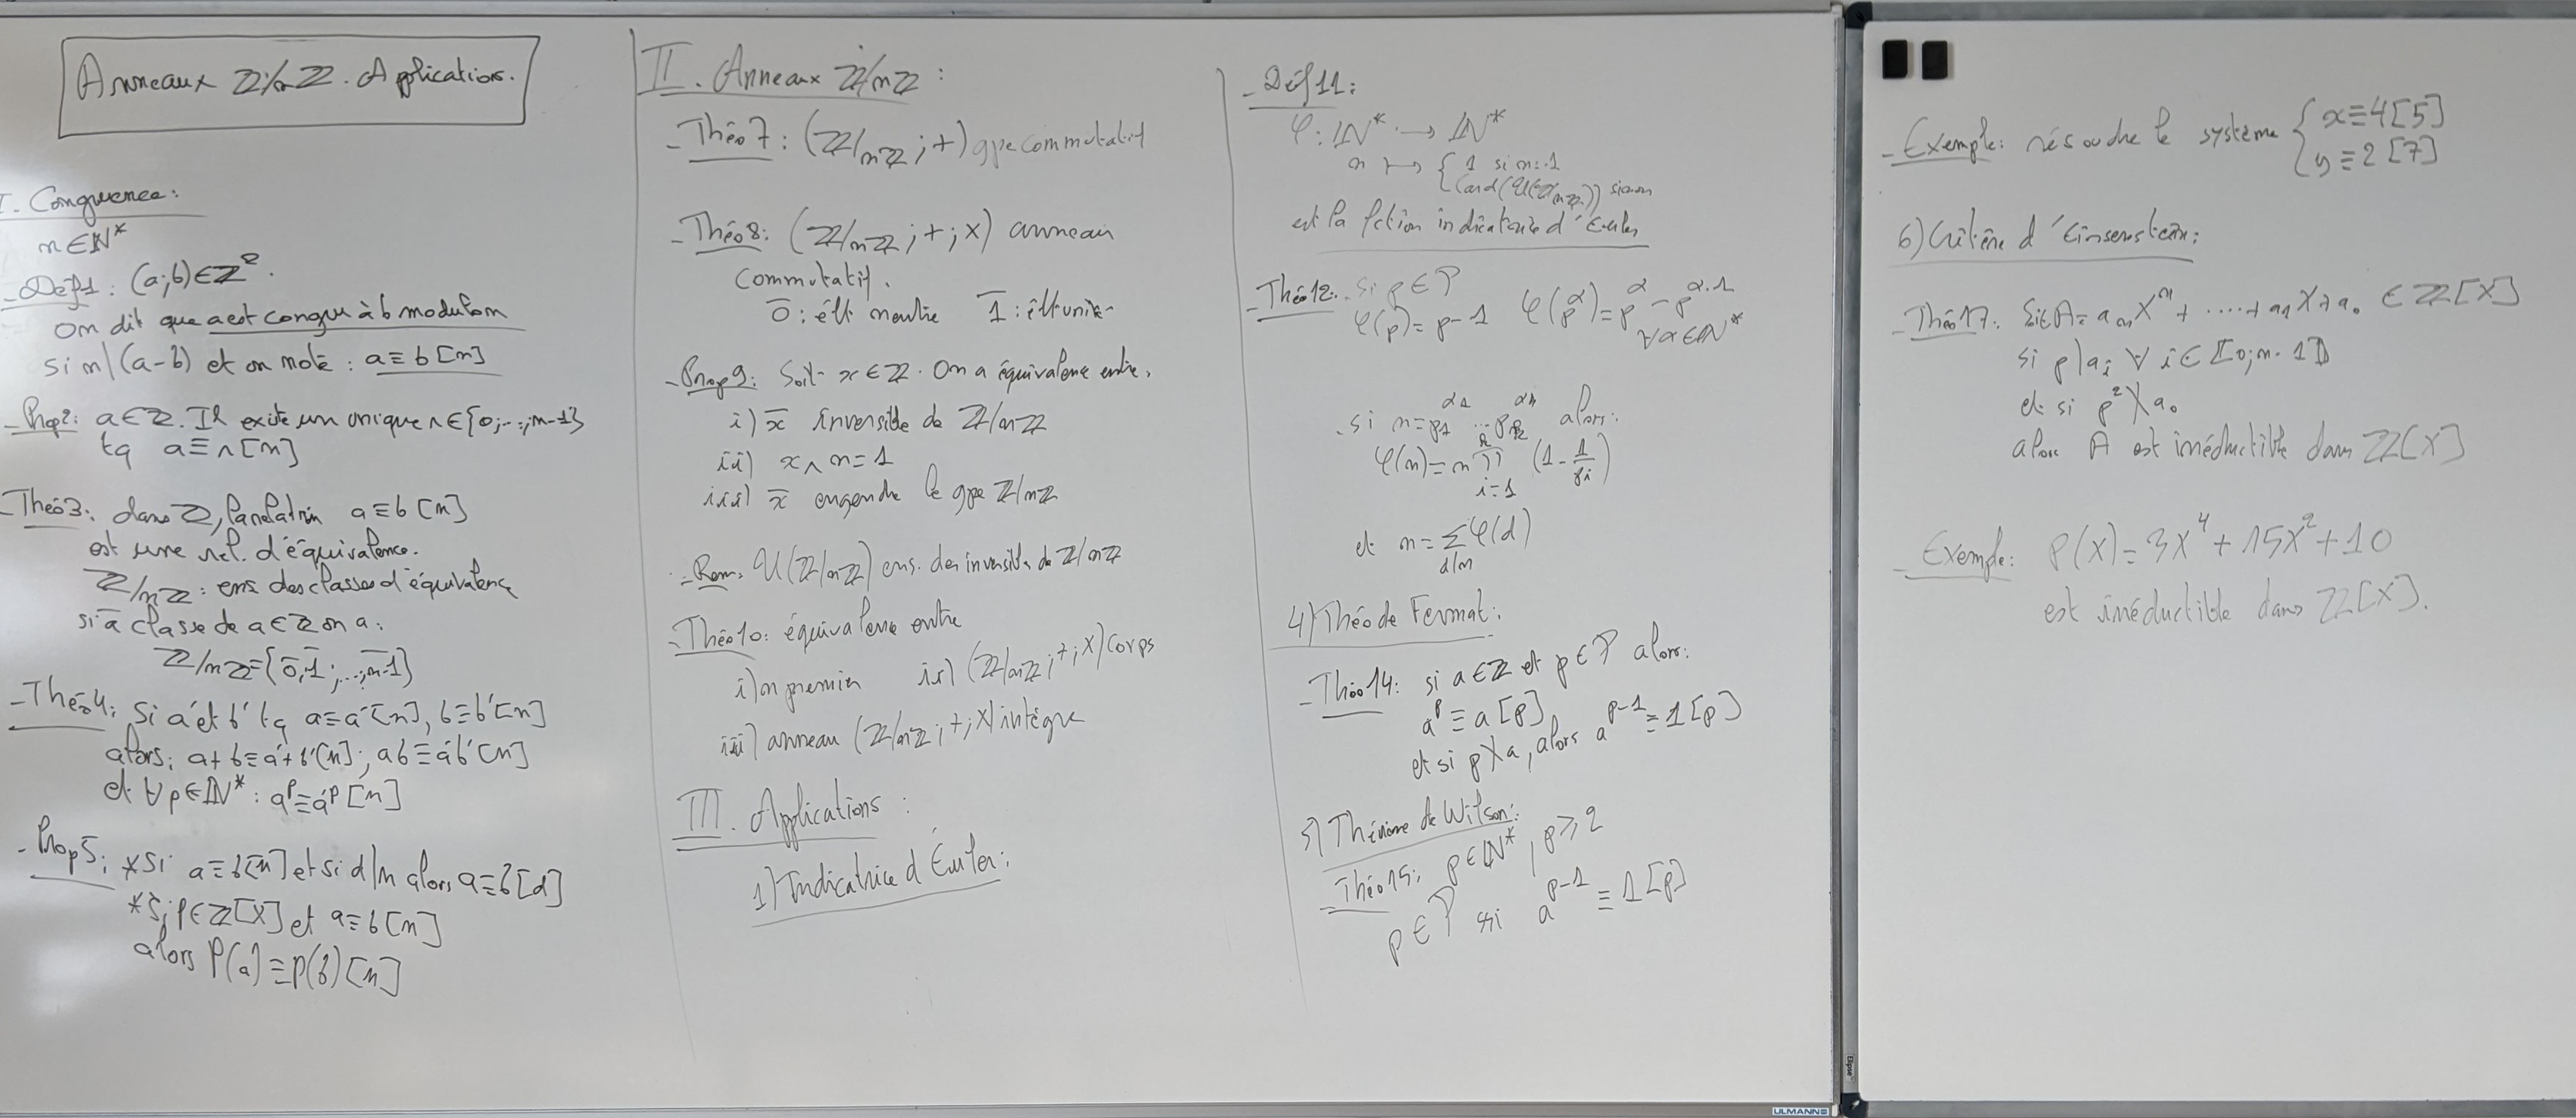 Anneaux ℤ/nℤ. Application.
I. Congruence:
n∈ℕ*
- Def1: (a;b)∈ℤ².
On dit que a est congru à b modulo n
si n|(a-b) et on note : a≡b[n]
- Prop2: a∈ℤ. Il existe un unique r∈{0;...;n-1}
tq a≡r[n]
- Théo3: dans ℤ, la relation a≡b[n]
est une rel. d'équivalence.
ℤ/nℤ: ens des classes d'équivalence
si ā classe de a∈ℤ on a:
ℤ/nℤ={0̄,1̄;...;n-1}
- Théo4: Si a' et b' tq a≡a'[n], b≡b'[n]
alors: a+b≡a'+b'[n]; ab≡a'b'[n]
et ∀p∈ℕ*: aᵖ≡a'ᵖ[n]
- Prop5: *Si a≡b[n] et si d|n alors a≡b[d]
*Si P∈ℤ[X] et a≡b[n]
alors P(a)≡P(b)[n]
II. Anneaux ℤ/nℤ :
- Théo7: (ℤ/nℤ;+) gpe commutatif
- Théo8: (ℤ/nℤ;+;×) anneau
commutatif.
0̄: élt neutre 1̄: élt unité
- Prop9: Soit x∈ℤ. On a équivalence entre:
i) x̄ inversible de ℤ/nℤ
ii) x∧n=1
iii) x̄ engendre le gpe ℤ/nℤ
- Rem: U(ℤ/nℤ) ens. des inversibles de ℤ/nℤ
- Théo10: équivalence entre
i) n premier ii) (ℤ/nℤ;+;×) corps
iii) anneau (ℤ/nℤ;+;×) intègre
III. Applications :
1) Indicatrice d'Euler:
- Def11:
φ: ℕ* → ℕ*
n ↦ { 1 si n=1
Card(U(ℤ/nℤ)) sinon
est la fction indicatrice d'Euler
- Théo12. si p∈P
φ(p)=p-1 φ(p^α)=p^α-p^(α-1)
∀α∈ℕ*
. si n=p₁^α₁...p_k^α_k alors:
φ(n)=n ∏_{i=1}^{k} (1-1/pᵢ)
et n=∑_{d|n} φ(d)
4) Théo de Fermat:
- Théo14: si a∈ℤ et p∈P alors:
aᵖ≡a[p]
et si p∤a, alors a^(p-1)≡1[p]
5) Théorème de Wilson:
- Théo15: p∈ℕ*, p≥2
p∈P ssi a^(p-1)≡1[p]
- Exemple: résoudre le système { x≡4[5]
y≡2[7]
6) Critère d'Einsenstein:
- Théo17: Soit A=aₙXⁿ+.....+a₁X+a₀ ∈ℤ[X]
si p|aᵢ ∀ i∈⟦0;n-1⟧
et si p²∤a₀
alors A est irréductible dans ℤ[X]
- Exemple: P(X)=3X⁴+15X²+10
est irréductible dans ℤ[X].
ULMANN